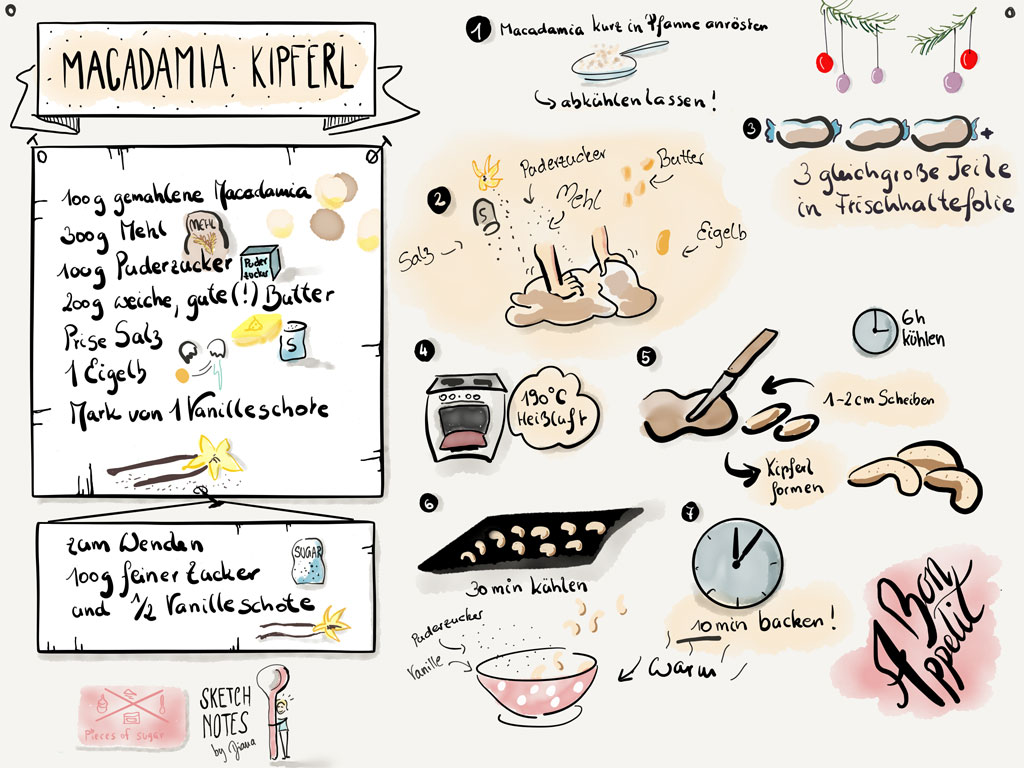 MACADAMIA KIPFERL
100g gemahlene Macadamia
300g Mehl
MEHL
100g Puderzucker
Puder
zucker
200g weiche, gute (!) Butter
Prise Salz
S
1 Eigelb
Mark von 1 Vanilleschote
zum Wenden
100g feiner Zucker
und 1/2 Vanilleschote
SUGAR
Pieces of sugar
SKETCH
NOTES
by Diana
1 Macadamia kurz in Pfanne anrösten
abkühlen lassen!
2
Puderzucker
Butter
Mehl
S
Salz
Eigelb
3
+
3 gleichgroße Teile
in Frischhaltefolie
6h
kühlen
4
190°C
Heißluft
5
1-2cm Scheiben
Kipferl
formen
6
30min kühlen
Puderzucker
Vanille
7
10min backen!
warm
Bon
Appetit